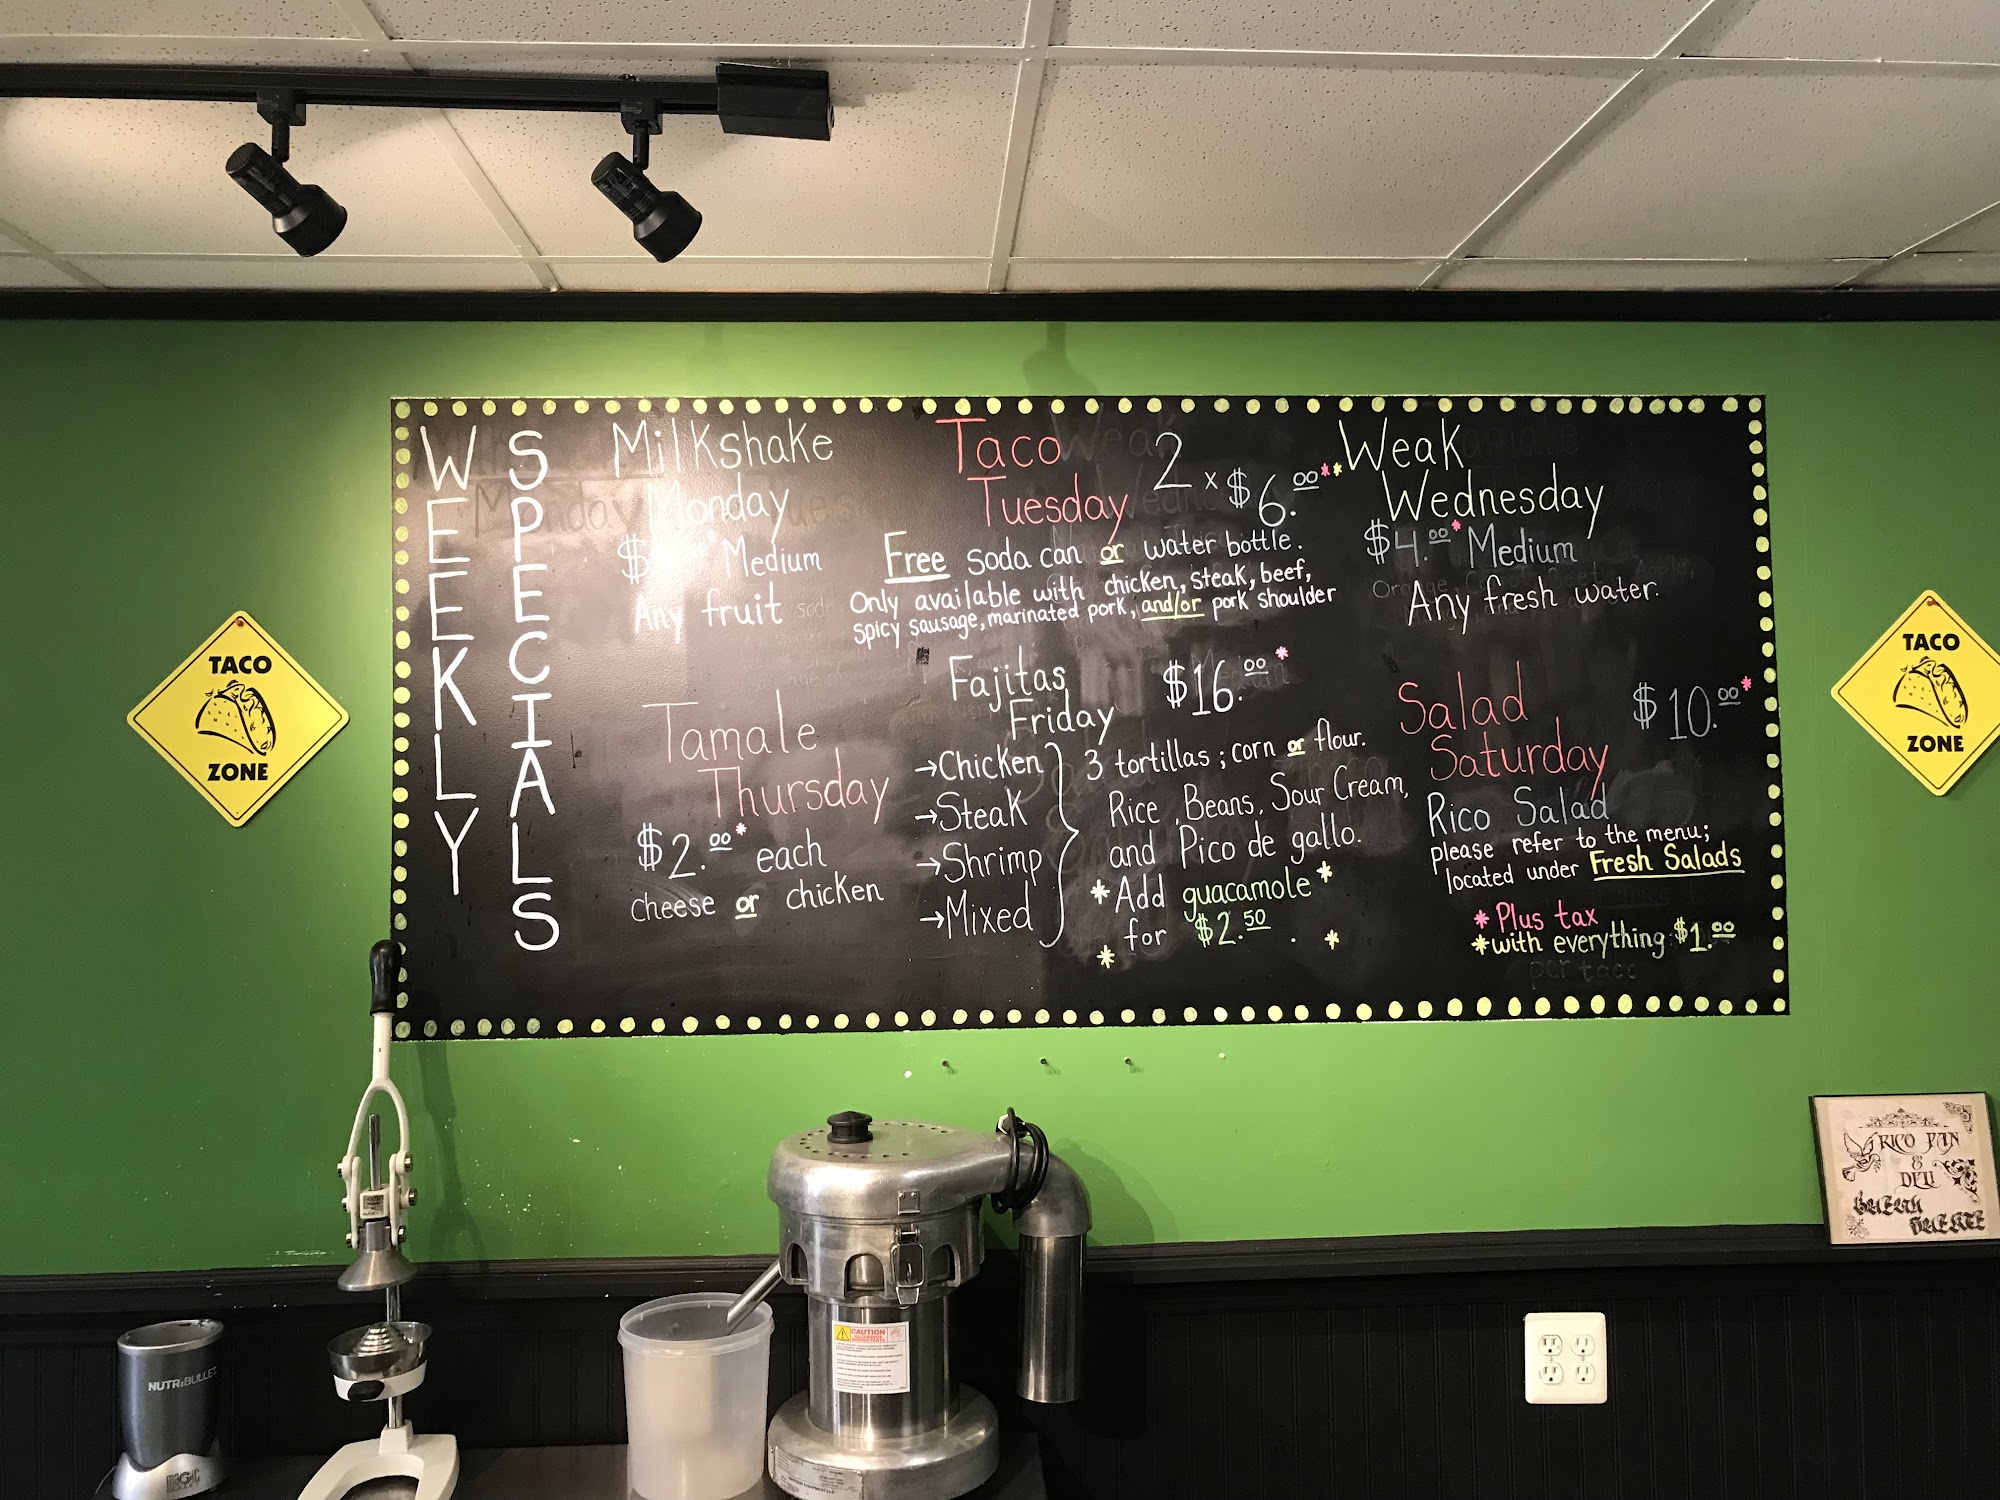 WEEKLY
SPECIALS
Milkshake
Monday
* Medium
Any fruit
Taco
Tuesday
2 x $6.00**
Free soda can or water bottle.
Only available with chicken, steak, beef,
spicy sausage, marinated pork, and/or pork shoulder
Weak
Wednesday
$4.00* Medium
Any fresh water.
Tamale
Thursday
$2.00* each
cheese or chicken
Fajitas
Friday
$16.00*
→Chicken
→Steak
→Shrimp
→Mixed
3 tortillas; corn or flour.
Rice, Beans, Sour Cream,
and Pico de gallo.
*Add guacamole*
for $2.50.
Salad
Saturday
$10.00*
Rico Salad
please refer to the menu;
located under Fresh Salads
* Plus tax
*with everything $1.00
per taco
TACO
ZONE
TACO
ZONE
RICO PAN
&
DELI
NUTRiBULLET
CAUTION